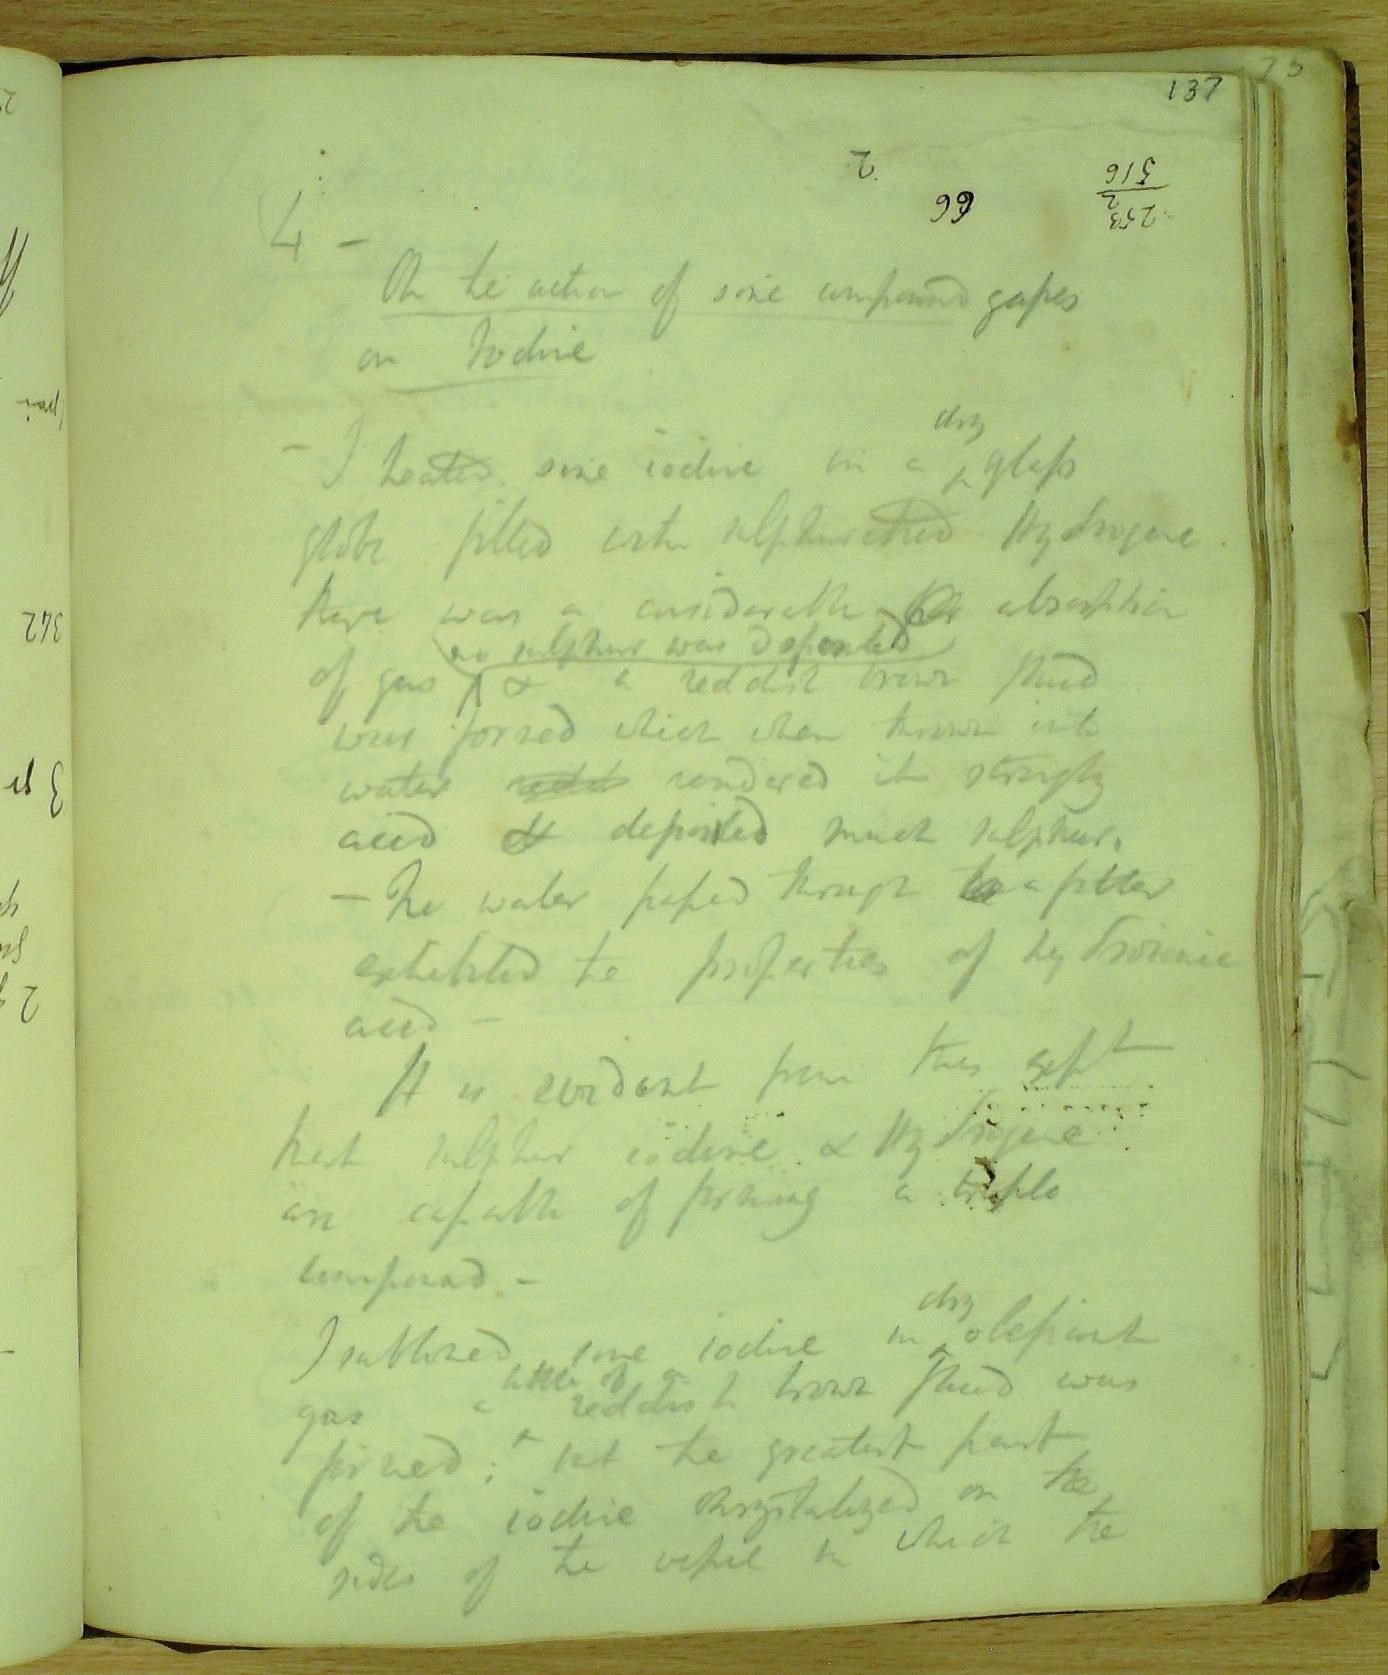 137
75
2.
66
253
2
516
4 -
On the action of some compound gases
on Iodine
dry
- I heated some iodine in a ^ glass
globe filled with sulphuretted Hydrogene.
there was a considerable absorption
no sulphur was deposited
of gas ^ & a reddish brown fluid
was formed which when thrown into
water rendered it strongly
acid & deposited much sulphur.
- The water passed through a filter
exhibited the properties of hydroionic
acid -
It is evident from this expt
that sulphur iodine & Hydrogene
are capable of forming a triple
compound -
dry
I sublimed some iodine in ^ olefiant
little of a
gas a reddish brown fluid was
formed; but the greatest part
of the iodine chrystalized on the
sides of the vessel in which the
342
3 gr
2